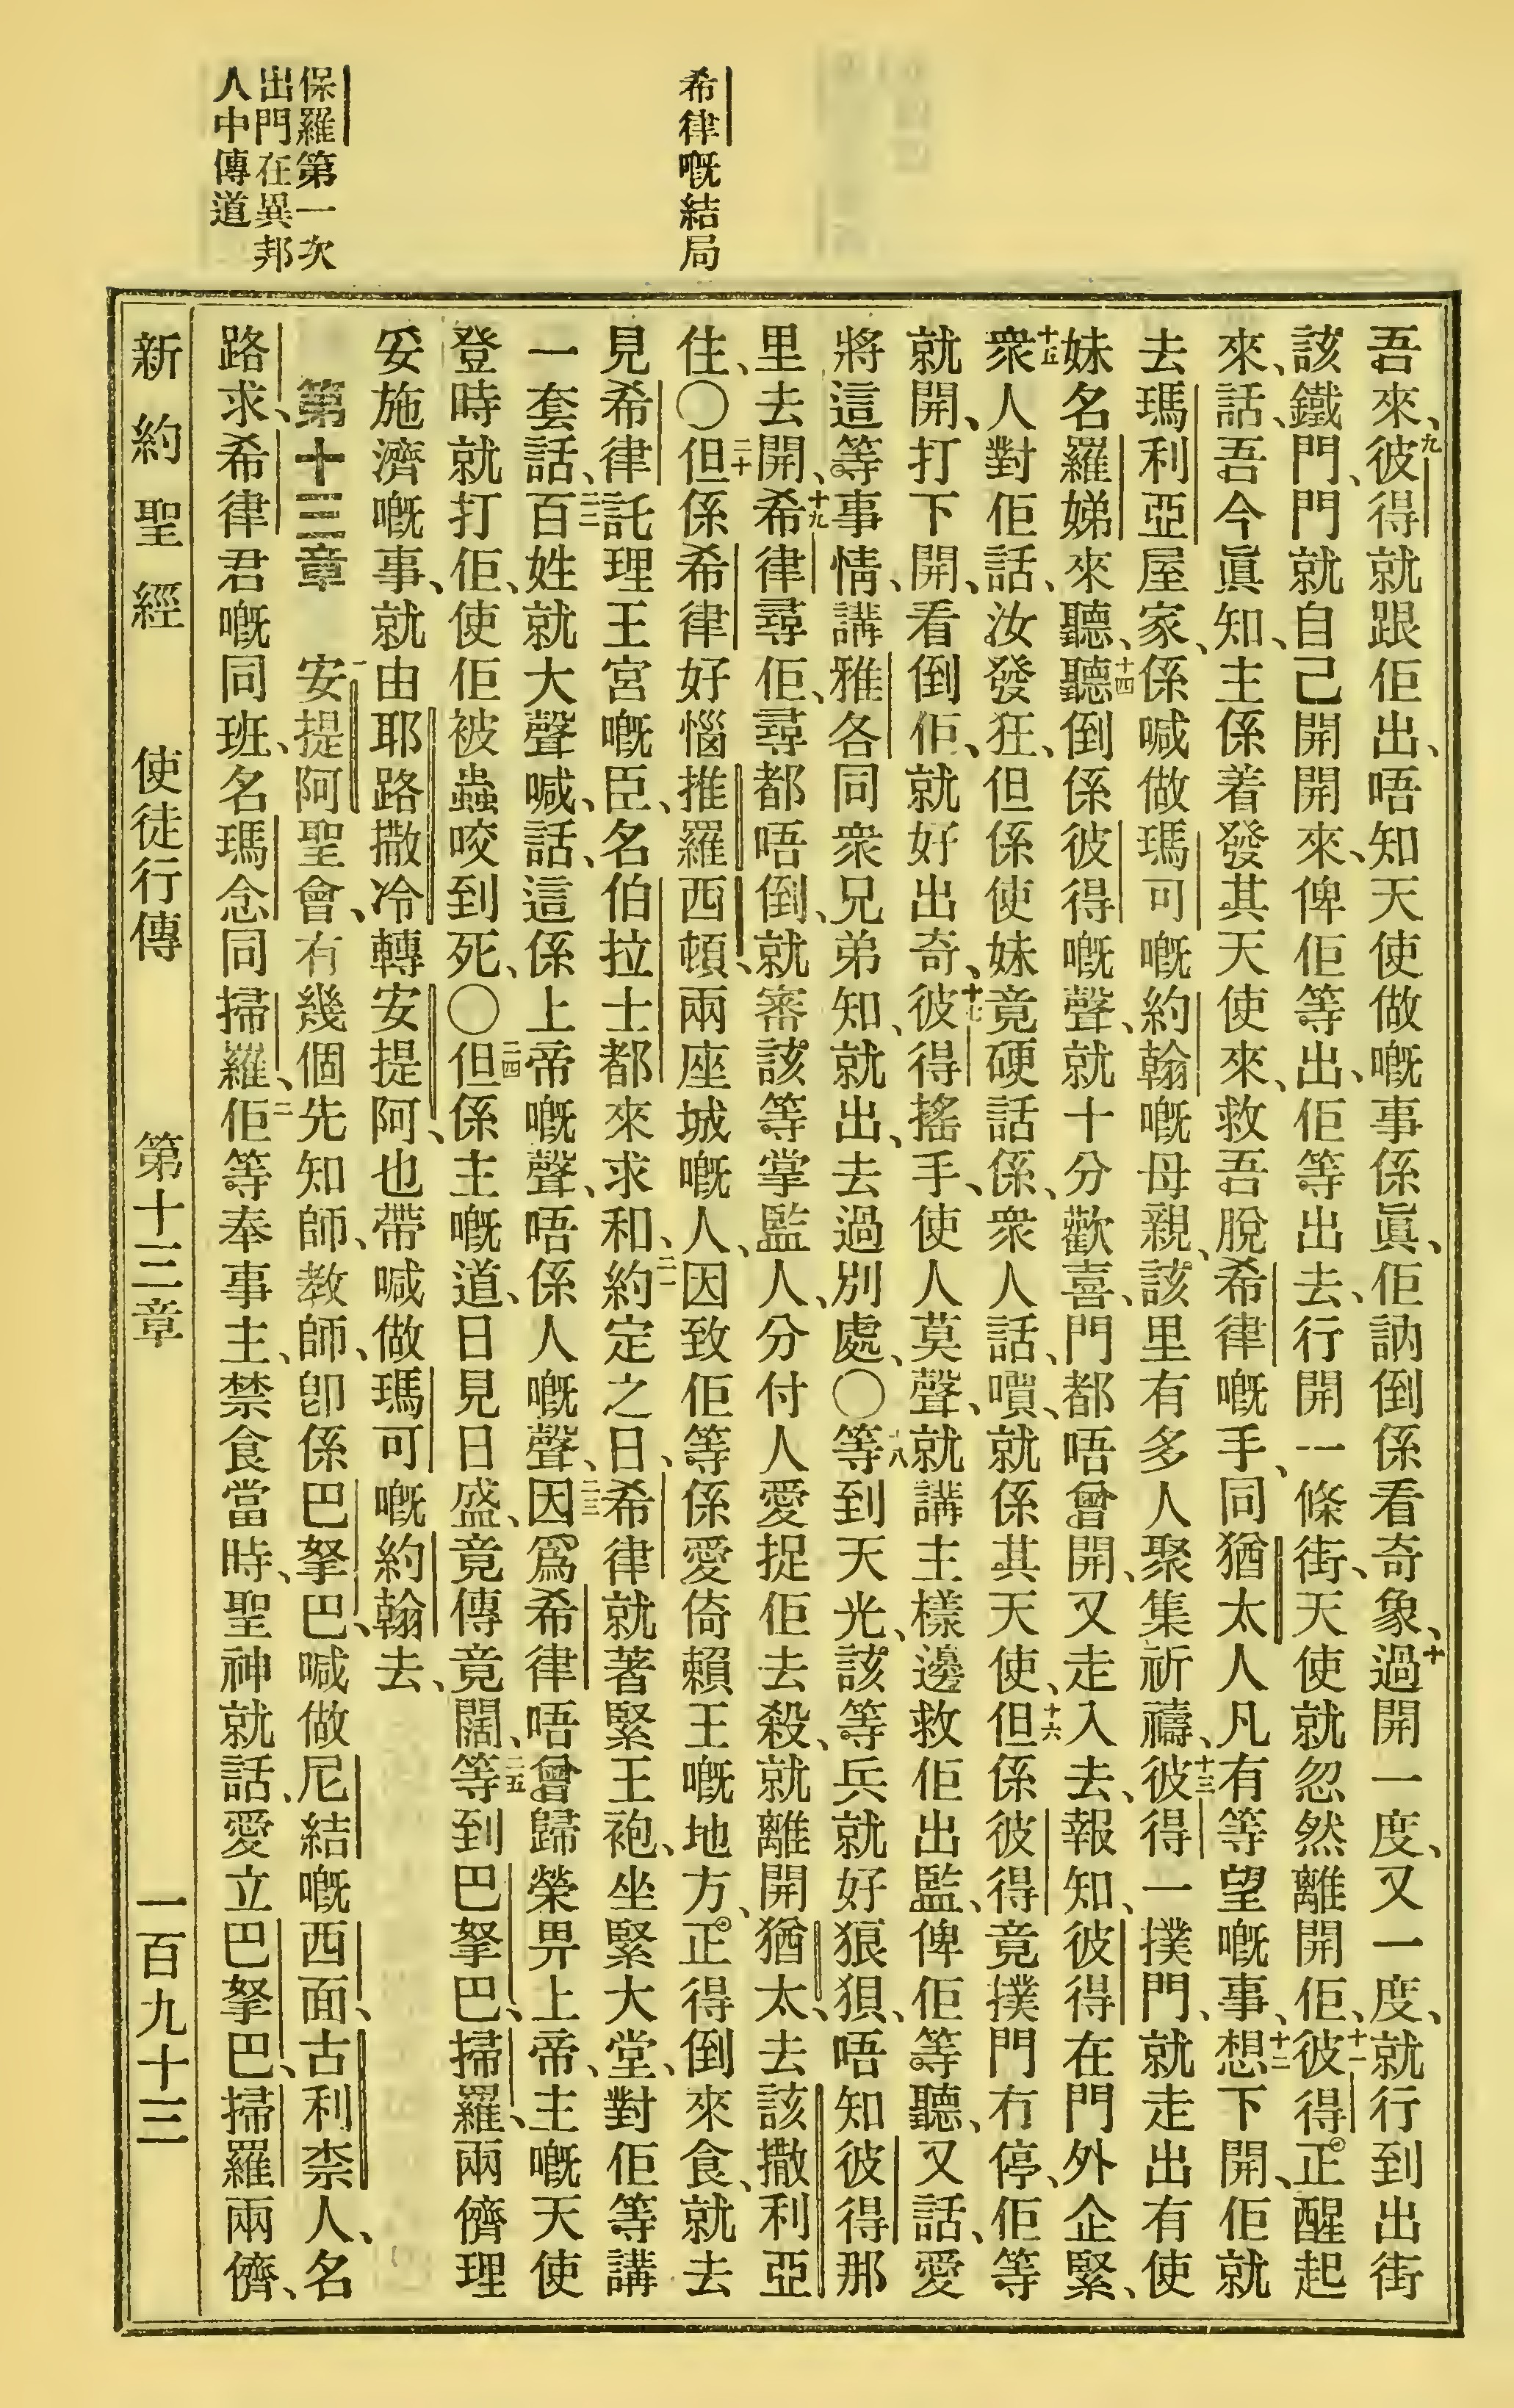 希律嘅結局
保羅第一次
出門在異邦
人中傳道
吾來、九彼得就跟佢出、唔知天使做嘅事係眞、佢訥倒係看奇象、十過開一度、又一度、就行到出街
該鐵門、門就自己開開來、俾佢等出、佢等出去、行開一條街、天使就忽然離開佢、十一彼得正醒起
來、話、吾今眞知、主係着發其天使來、救吾脫希律嘅手、同猶太人凡有等望嘅事、十二想下開、佢就
去瑪利亞屋家、係喊做瑪可嘅約翰嘅母親、該里有多人聚集祈禱、十三彼得一撲門、就走出有使
妹名羅娣來聽、十四聽倒係彼得嘅聲、就十分歡喜、門都唔曾開、又走入去、報知、彼得在門外企緊、
十五衆人對佢話、汝發狂、但係使妹竟硬話係、衆人話、嘳、就係其天使、十六但係彼得竟撲門冇停、佢等
就開、打下開、看倒佢、就好出奇、十七彼得搖手、使人莫聲、就講主樣邊救佢出監、俾佢等聽、又話、愛
將這等事情、講雅各同衆兄弟知、就出、去過別處、〇十八等到天光、該等兵就好狼狽、唔知彼得那
里去開、十九希律尋佢、尋都唔倒、就審該等掌監人、分付人愛捉佢去殺、就離開猶太、去該撒利亞
住、〇二十但係希律好惱推羅西頓、兩座城嘅人、因致佢等係愛倚賴王嘅地方、正得倒來食、就去
見希律託理王宮嘅臣、名伯拉士都來求和、二一約定之日、希律就著緊王袍、坐緊大堂、對佢等講
一套話、二二百姓就大聲喊、話、這係上帝嘅聲、唔係人嘅聲、二三因爲希律唔曾歸榮畀上帝、主嘅天使
登時就打佢、使佢被蟲咬到死、〇二四但係主嘅道、日見日盛、竟傳竟闊、二五等到巴拏巴、掃羅、兩儕理
妥施濟嘅事、就由耶路撒冷轉安提阿、也帶喊做瑪可嘅約翰去、
第十三章 一安提阿聖會、有幾個先知師、教師、卽係巴拏巴、喊做尼結嘅西面、古利柰人、名
路求、希律君嘅同班、名瑪念同掃羅、二佢等奉事主、禁食當時、聖神就話、愛立巴拏巴、掃羅兩儕、
新約聖經 使徒行傳 第十三章 一百九十三